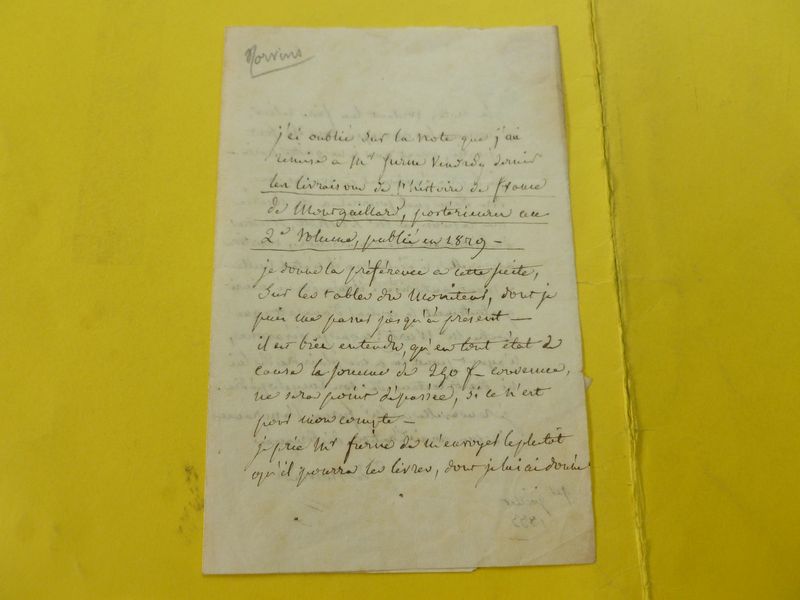 Norvins
j'ai oublié sur la note que j'ai
remise à Mr furne vendredy dernier
les livraisons de l'histoire de france
de Montgaillard, postérieures au
2e volume, publié en 1829 –
je donne la préférence a cette suite,
sur les tables du Moniteur, dont je
puis me passer jusqu'à présent –
il est bien entendu, qu'en tout état de
cause la somme de 250 f– convenue,
ne sera point dépassée, si ce n'est
pour mon compte –
je prie Mr furne de m'envoyer le plutôt
qu'il pourra les livres, dont je lui ai donné